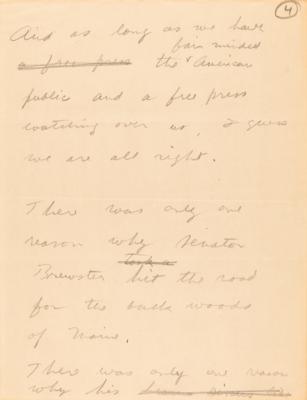 4
And as long as we have
fair minded
a free press the American
public and a free press
watching over us, I guess
we are all right.
There was only one
reason why Senator
took a
Brewster hit the road
for the back woods
of Maine.
There was only one reason
why his